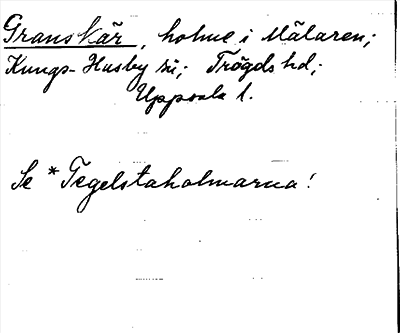 Granskär, holme i Mälaren;
Kungs-Husby sn; Trögds hd;
Uppsala l.
Se *Tegelstaholmarna!